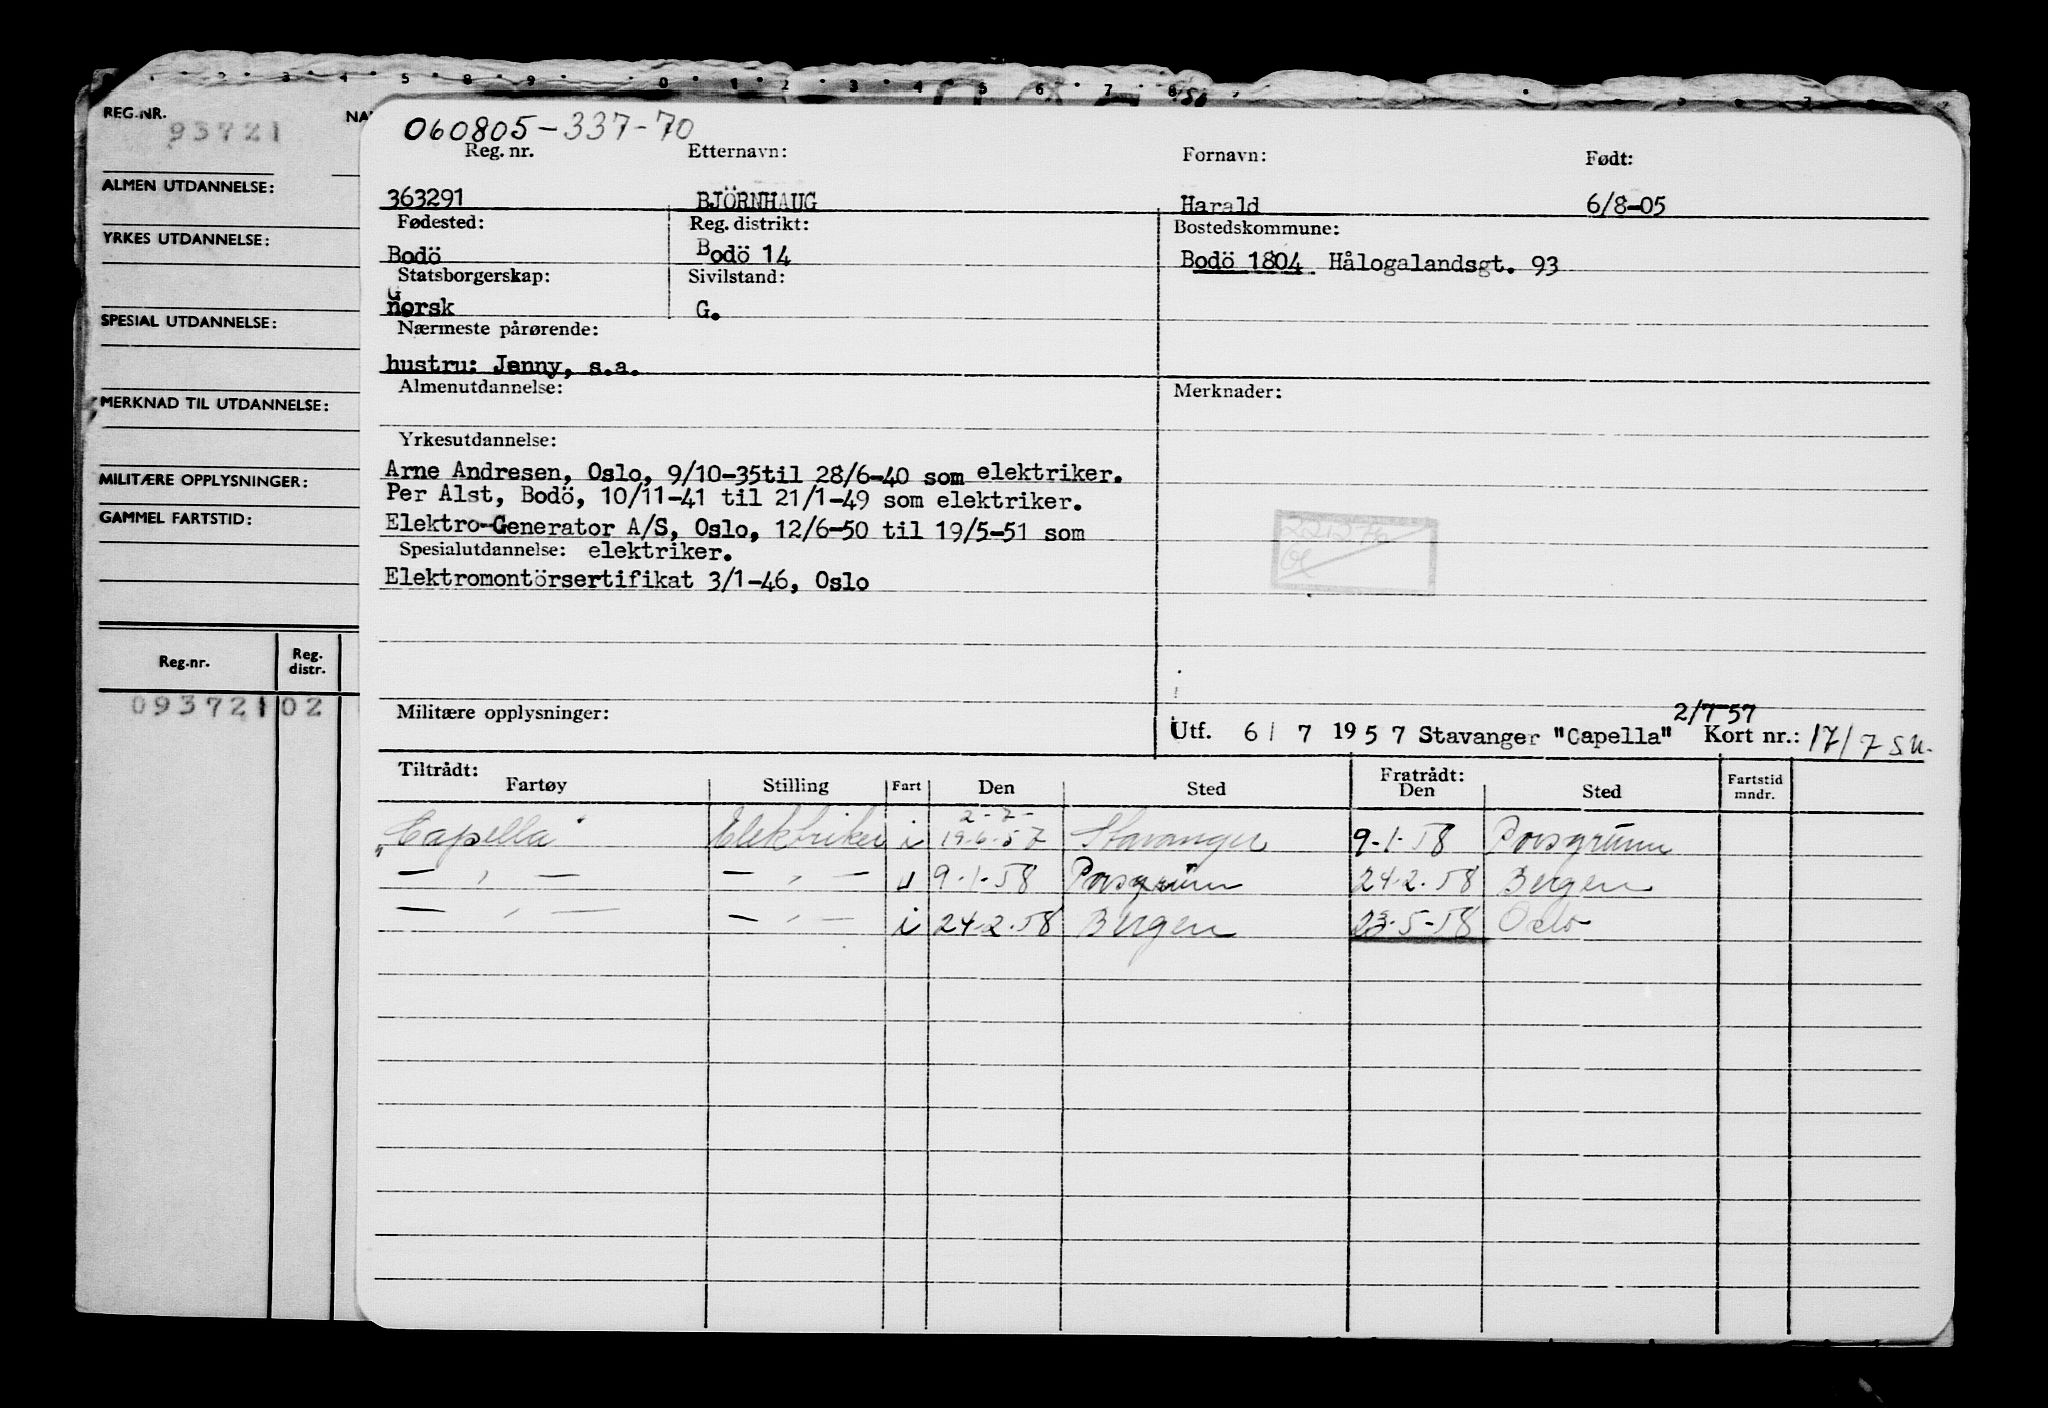 REG.NR. 93721 NA
ALMEN UTDANNELSE:
YRKES UTDANNELSE:
SPESIAL UTDANNELSE:
MERKNAD TIL UTDANNELSE:
MILITÆRE OPPLYSNINGER:
GAMMEL FARTSTID:
Reg.nr. Reg. distr.
093721 02
060805-337-70
Reg. nr. Etternavn: Fornavn: Født:
363291 BJÖRNHAUG Harald 6/8-05
Fødested: Reg. distrikt: Bostedskommune:
Bodö Bodö 14 Bodö 1804 Hålogalandsgt. 93
Statsborgerskap: Sivilstand:
norsk G.
Nærmeste pårørende:
hustru: Jenny, s.a.
Almenutdannelse: Merknader:
Yrkesutdannelse:
Arne Andresen, Oslo, 9/10-35til 28/6-40 som elektriker.
Per Alst, Bodö, 10/11-41 til 21/1-49 som elektriker.
Elektro-Generator A/S, Oslo, 12/6-50 til 19/5-51 som
Spesialutdannelse: elektriker.
Elektromontörsertifikat 3/1-46, Oslo
Militære opplysninger:
2/7-57
Utf. 6/ 7 1957 Stavanger "Capella" Kort nr.: 17/7 SU.
Tiltrådt: Fratrådt:
Fartøy Stilling Fart Den Sted Den Sted Fartstid mndr.
2-7-
"Capella" Elektriker i 19.6.57 Stavanger 9.1.58 Porsgrunn
— " — — " — u 9.1.58 Porsgrunn 24.2.58 Bergen
— " — — " — i 24.2.58 Bergen 23.5-58 Oslo